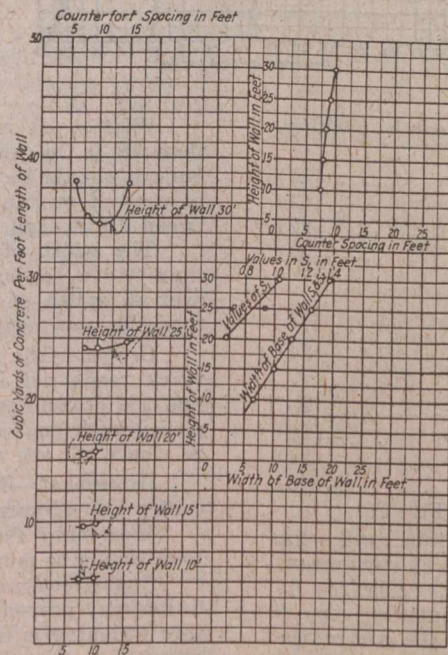 Counterfort Spacing in Feet
5 10 15
50
40
30
20
10
Cubic Yards of Concrete Per Foot Length of Wall
Height of Wall 30'
Height of Wall 25'
Height of Wall 20'
Height of Wall 15'
Height of Wall 10'
5 10 15
Height of Wall in Feet
30
25
20
15
10
5
0 5 10 15 20 25
Counter Spacing in Feet
Values in S, in Feet
0.8 1.0 1.2 1.4
Height of Wall in Feet
30
25
20
15
10
5
Values of S,
Width of Base of Wall
0 5 10 15 20 25
Width of Base of Wall, in Feet